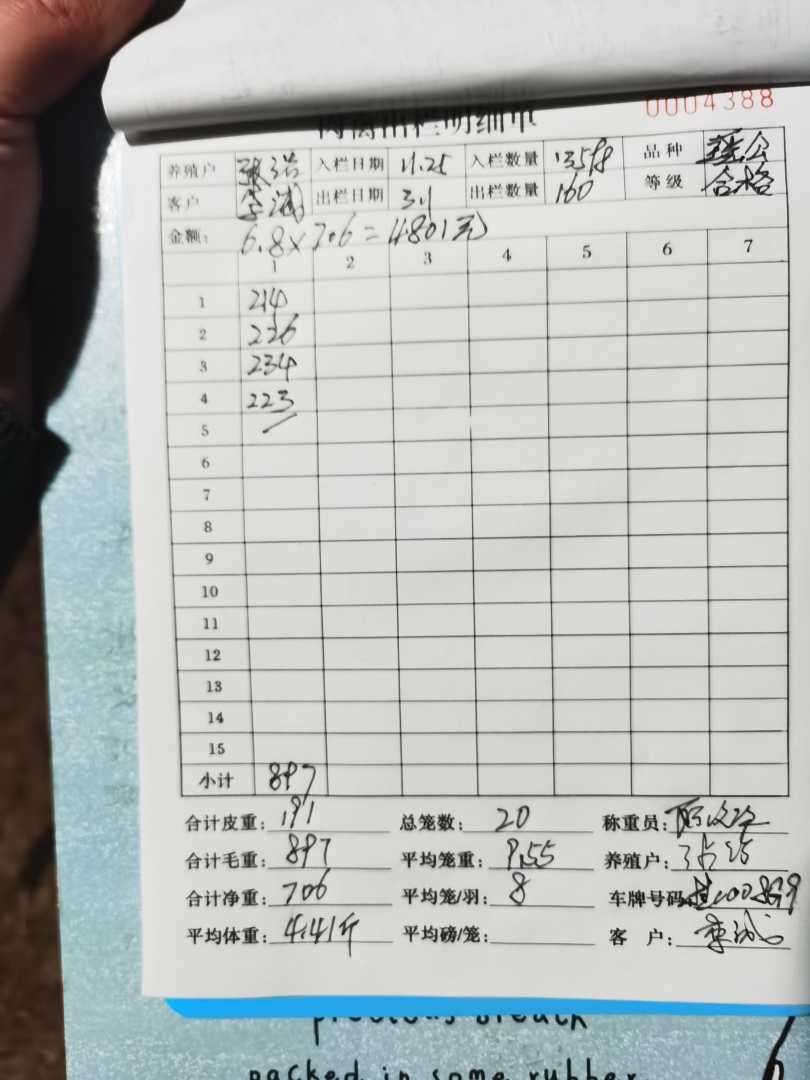 0004388
肉禽出栏明细单
养殖户 入栏日期 11.25 入栏数量 品种
客户 李诚 出栏日期 3.1 出栏数量 160 等级 合格
金额: 6.8×706=4801元
1 2 3 4 5 6 7
1 214
2 226
3 234
4 223
5
6
7
8
9
10
11
12
13
14
15
小计 897
合计皮重: 191 总笼数: 20 称重员:
合计毛重: 897 平均笼重: 9.55 养殖户:
合计净重: 706 平均笼/羽: 8 车牌号码:
平均体重: 4.41斤 平均磅/笼: 客 户: 李诚
precious breath
packed in some rubber